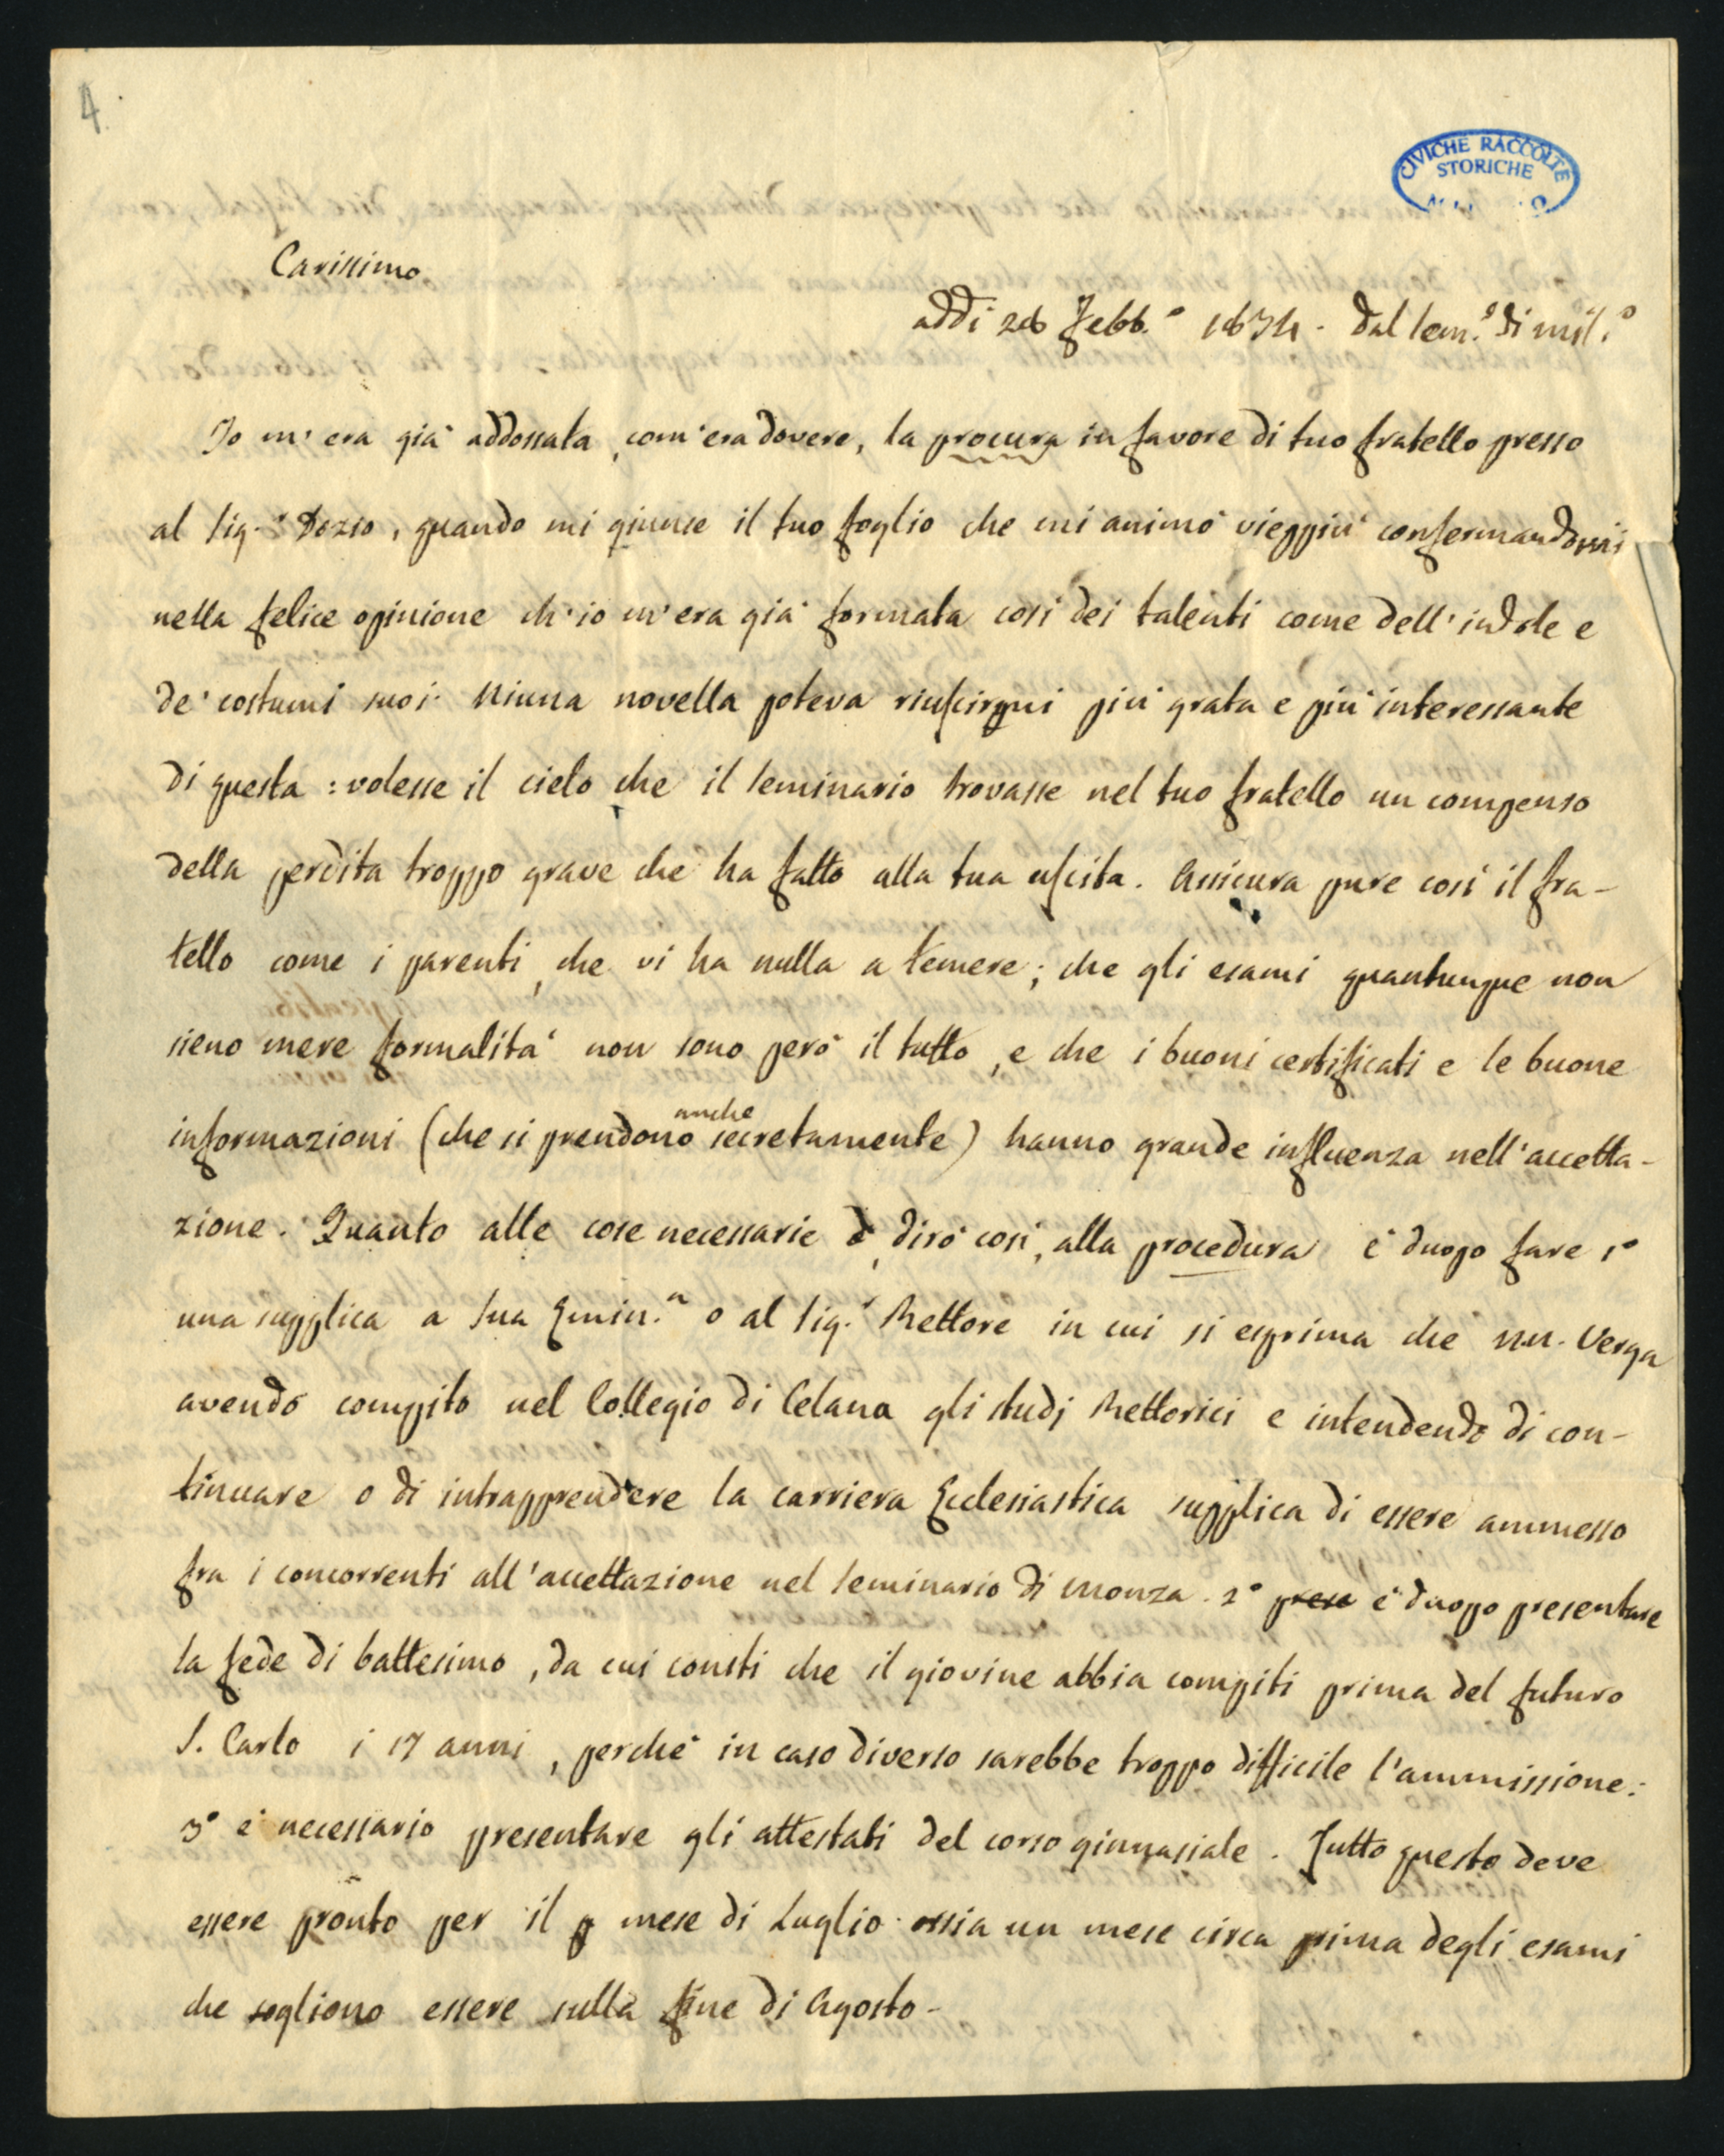 4.
CIVICHE RACCOLTE
STORICHE
Carissimo
addi 26 Febb.o 1834. dal Sem.o di Mil.o
Io m'era già addossata, com'era dovere, la procura in favore di tuo fratello presso
al Sig.r Dozio, quando mi giunse il tuo foglio che mi animò vieppiù confermandomi
nella felice opinione ch'io m'era già formata così dei talenti come dell'indole e
de' costumi suoi. Niuna novella poteva riuscirmi più grata e più interessante
di questa: volesse il cielo che il Seminario trovasse nel tuo fratello un compenso
della perdita troppo grave che ha fatto alla tua uscita. Assicura pure così il fra-
tello come i parenti, che vi ha nulla a temere; che gli esami quantunque non
sieno mere formalità non sono però il tutto, e che i buoni certificati e le buone
informazioni (che si prendono anche secretamente) hanno grande influenza nell'accetta-
zione. Quanto alle cose necessarie, dirò così, alla procedura è duopo fare 1o
una supplica a Sua Emin.a o al Sig.r Rettore in cui si esprima che NN. Verga
avendo compito nel Collegio di Celana gli studj Rettorici e intendendo di con-
tinuare o di intrapprendere la carriera Ecclesiastica supplica di essere ammesso
fra i concorrenti all'accettazione nel Seminario di Monza. 2o prese è duopo presentare
la fede di battesimo, da cui consti che il giovine abbia compiti prima del futuro
S. Carlo i 17 anni, perchè in caso diverso sarebbe troppo difficile l'ammissione:
3o è necessario presentare gli attestati del corso ginnasiale. Tutto questo deve
essere pronto per il p mese di Luglio ossia un mese circa prima degli esami
che sogliono essere sulla fine di Agosto-